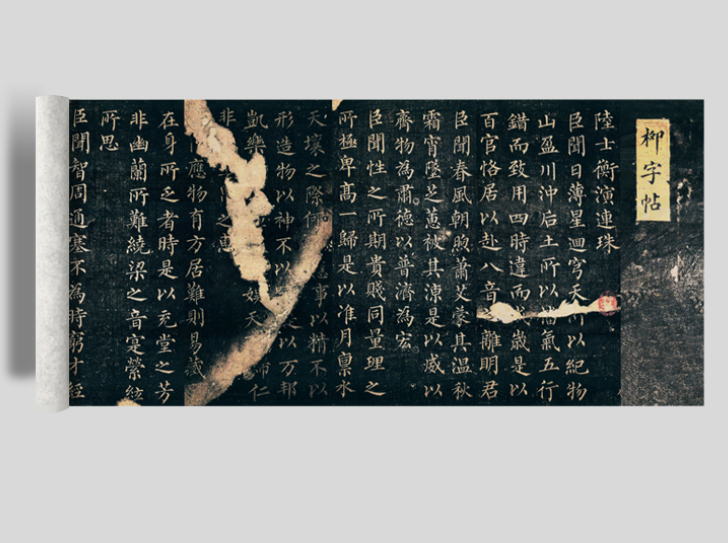 柳字帖
陸士衡演連珠
臣聞日薄星迴穹天所以紀物
山盈川沖后土所以播氣五行
錯而致用四時違而成歲是以
百官恪居以赴八音之離明君
臣聞春風朝煦蕭艾蒙其溫秋
霜宵墜芝蕙被其涼是以威以
齊物為肅德以普濟為宏
臣聞性之所期貴賤同量理之
所極卑高一歸是以准月稟水
天壤之際何事以精不以
形造物以神不以以萬邦
凱樂娛天仁
非之惠
應物有方居難則易藏
在身所乏者時是以充堂之芳
非幽蘭所難繞梁之音寔縈絃
所思
臣聞智周通塞不為時窮才經